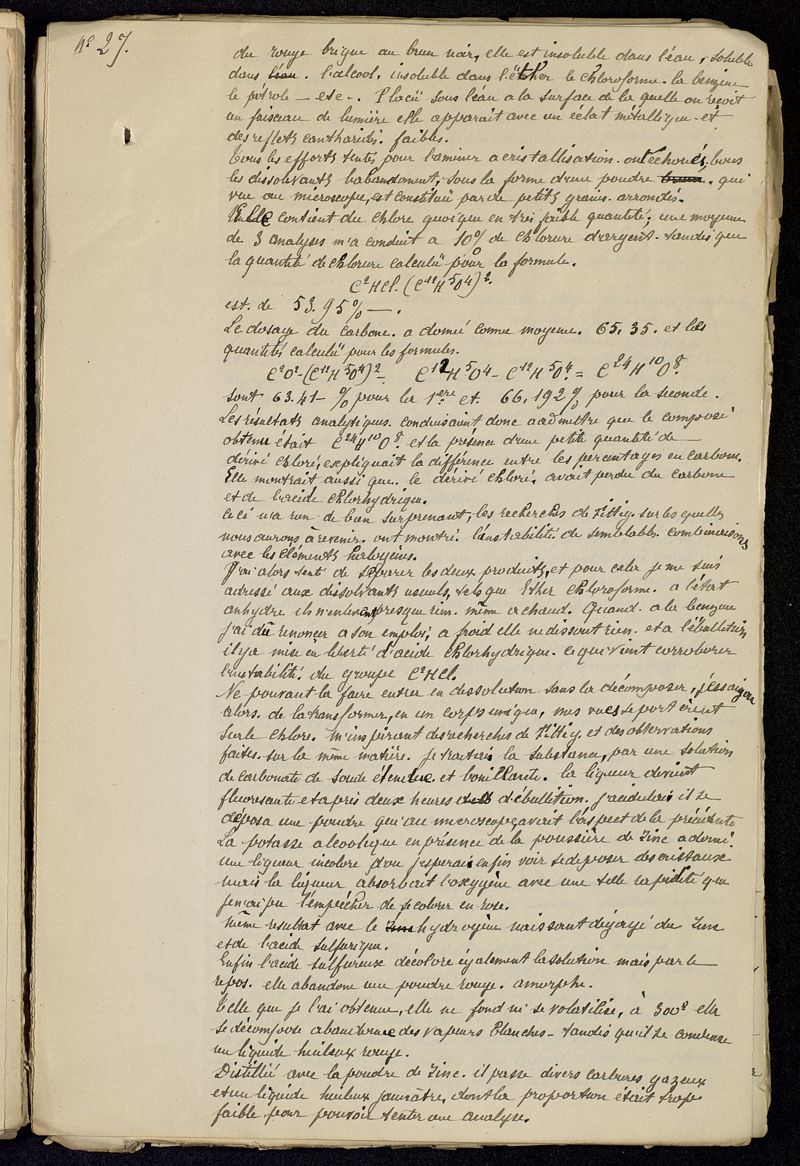 Nº 27.
du rouge brique au brun noir, elle est insoluble dans l'eau, soluble
dans l'eau. l'alcool, insoluble dans l'éther le chloroforme. la benzine
le pétrole — etc-. Placée sous l'eau a la surface de la quelle on reçoit
un faisceau de lumière elle apparait avec un éclat métallique et
des reflets cantharidés. faibles.
Tous les efforts tentés pour l'aminer a cristallisation. ont échoués, tous
les dissolvants l'abandonnent, sous la forme d'une poudre brune. qui
vue au microscope, est constituée par de petits grains arrondis.
Elle contient du chlore quoique en très faible quantité; une moyenne
de 3 analyses m'a conduit a 10% de chlorure d'argent. tandis que
la quantité de chlorure calculée pour la formule.
C²HCl. (C¹²H⁵O⁴)².
est. de 53.95% —.
Le dosage du carbone. a donné comme moyenne. 65,35. et les
quantités calculées pour les formules.
C²O²-(C¹²H⁵O⁴)² — C¹²H⁵O⁴ - C¹²H⁵O⁴. = C²⁴H¹⁰O⁸.
sont 63.41- % pour la 1ère et. 66,192% pour la seconde.
Les résultats analytiques. conduisaient donc a admettre que le composé
obtenu était C²⁴H¹⁰O⁸. et la présence d'une petite quantité de —
dérivé chloré, expliquait la différence entre les percentages en carbone.
Elle montrait aussi que. le dérivé chloré. avait perdu du carbone
et de l'acide chlorhydrique.
Ceci n'a rien de bien surprenant, les recherches de Fittig. sur les quelles
nous aurons à revenir. ont montré l'instabilité. de semblables combinaisons
avec les éléments halogènes.
J'ai alors tenté de séparer les deux produits, et pour cela je me suis
adressé aux dissolvants usuels, tels que Ether chloroforme. a l'état
anhydre ils n'enlèvent presque rien. même a chaud. Quand. a la benzine
j'ai dû renoncer a son emploi, a froid elle ne dissout rien. et a l'ébullition
il y a mise en liberté d'acide chlorhydrique. ce qui vient corroborer
l'instabilité. du groupe C²HCl.
Ne pouvant la faire entrer en dissolution sans la décomposer, j'essaiyai
alors. de la transformer, en un corps unique, mes vues se portèrent
sur le chlore. m'inspirant des recherches de Fittig. et des observations
faites. sur la même matière. je traitai la substance, par une solution
de carbonate de soude étendue. et bouillante. la liqueur devient
fluorescente et après deux heures d'ébullition. j'acidulai il se
déposa une poudre qui au microscope avait l'aspect de la précédente
La potasse alcoolique en présence de la poussière de Zinc a donné.
une liqueur incolore d'ou j'esperais enfin voir se déposer des cristaux
mais la liqueur absorbait l'oxygène avec une telle rapidité que
je n'ai pu l'empêcher de se colorer en rose.
Même resultat avec le Zinc hydrogène naissant dégagé du Zinc
et de l'acide sulfurique.
Enfin l'acide sulfureux décolore également la solution mais par le
repos. elle abandonne une poudre rouge. amorphe.
Telle que je l'ai obtenue, elle ne fond ni se volatilise, à 300° elle
se décompose abandonne des vapeurs blanches - tandis qu'il se condense
un liquide huileux rouge.
Distillée avec la poudre de Zinc. il passe divers carbures gazeux
et un liquide huileux jaunâtre, dont la proportion était trop
faible pour pouvoir tenter une analyse.